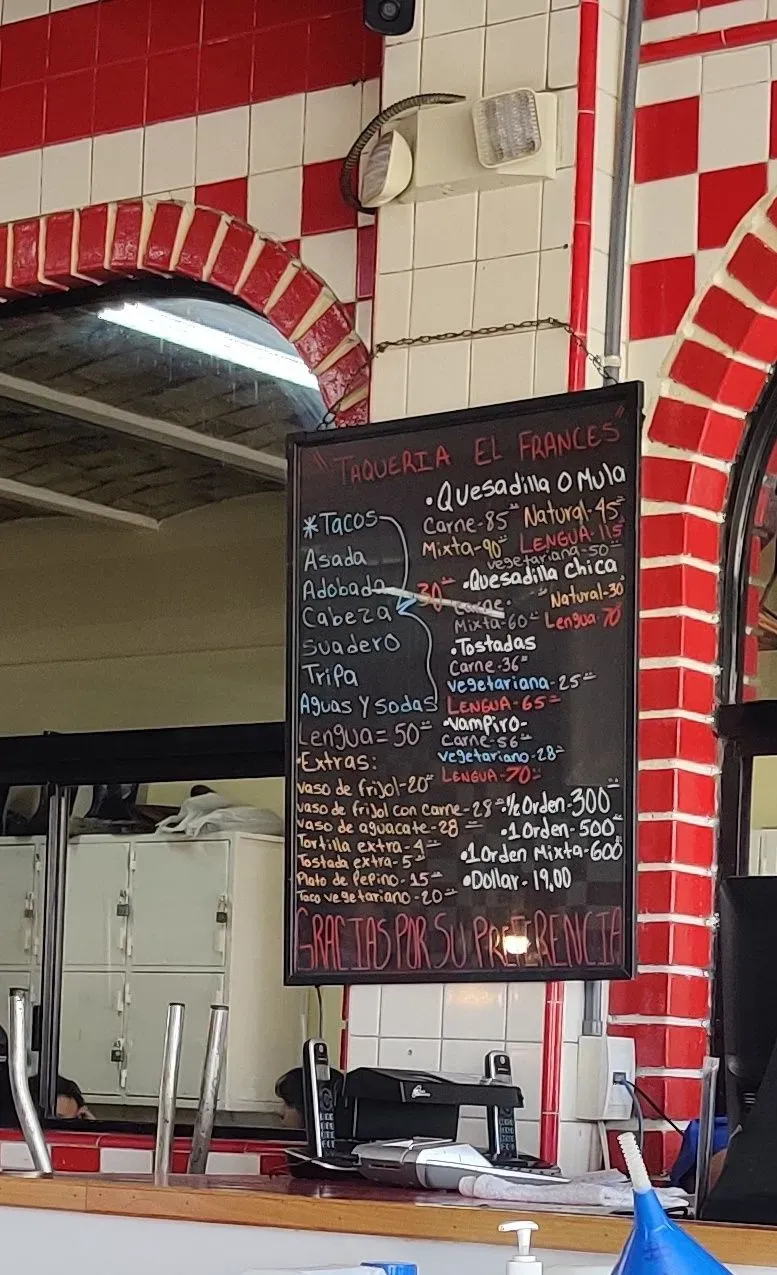 "TAQUERIA EL FRANCES"
*Tacos
Asada
Adobada
Cabeza
Suadero
Tripa
Aguas y sodas
30=
Lengua=50=
•Extras:
vaso de frijol-20=
vaso de frijol con carne-28=
vaso de aguacate-28=
Tortilla extra-4=
Tostada extra-5=
Plato de Pepino-15=
Taco vegetariano-20=
•Quesadilla O Mula
Carne-85= Natural-45=
Mixta-90= LENGUA-115
vegetariana-50=
•Quesadilla chica
carne- Natural-30
Mixta-60= Lengua-70
•Tostadas
Carne-36=
vegetariana-25=
LENGUA-65=
•Vampiro-
Carne-56=
vegetariano-28=
LENGUA-70=
•½ Orden-300=
•1 Orden-500=
•1 Orden Mixta-600
•Dollar-19,00
GRACIAS POR SU PREFERENCIA